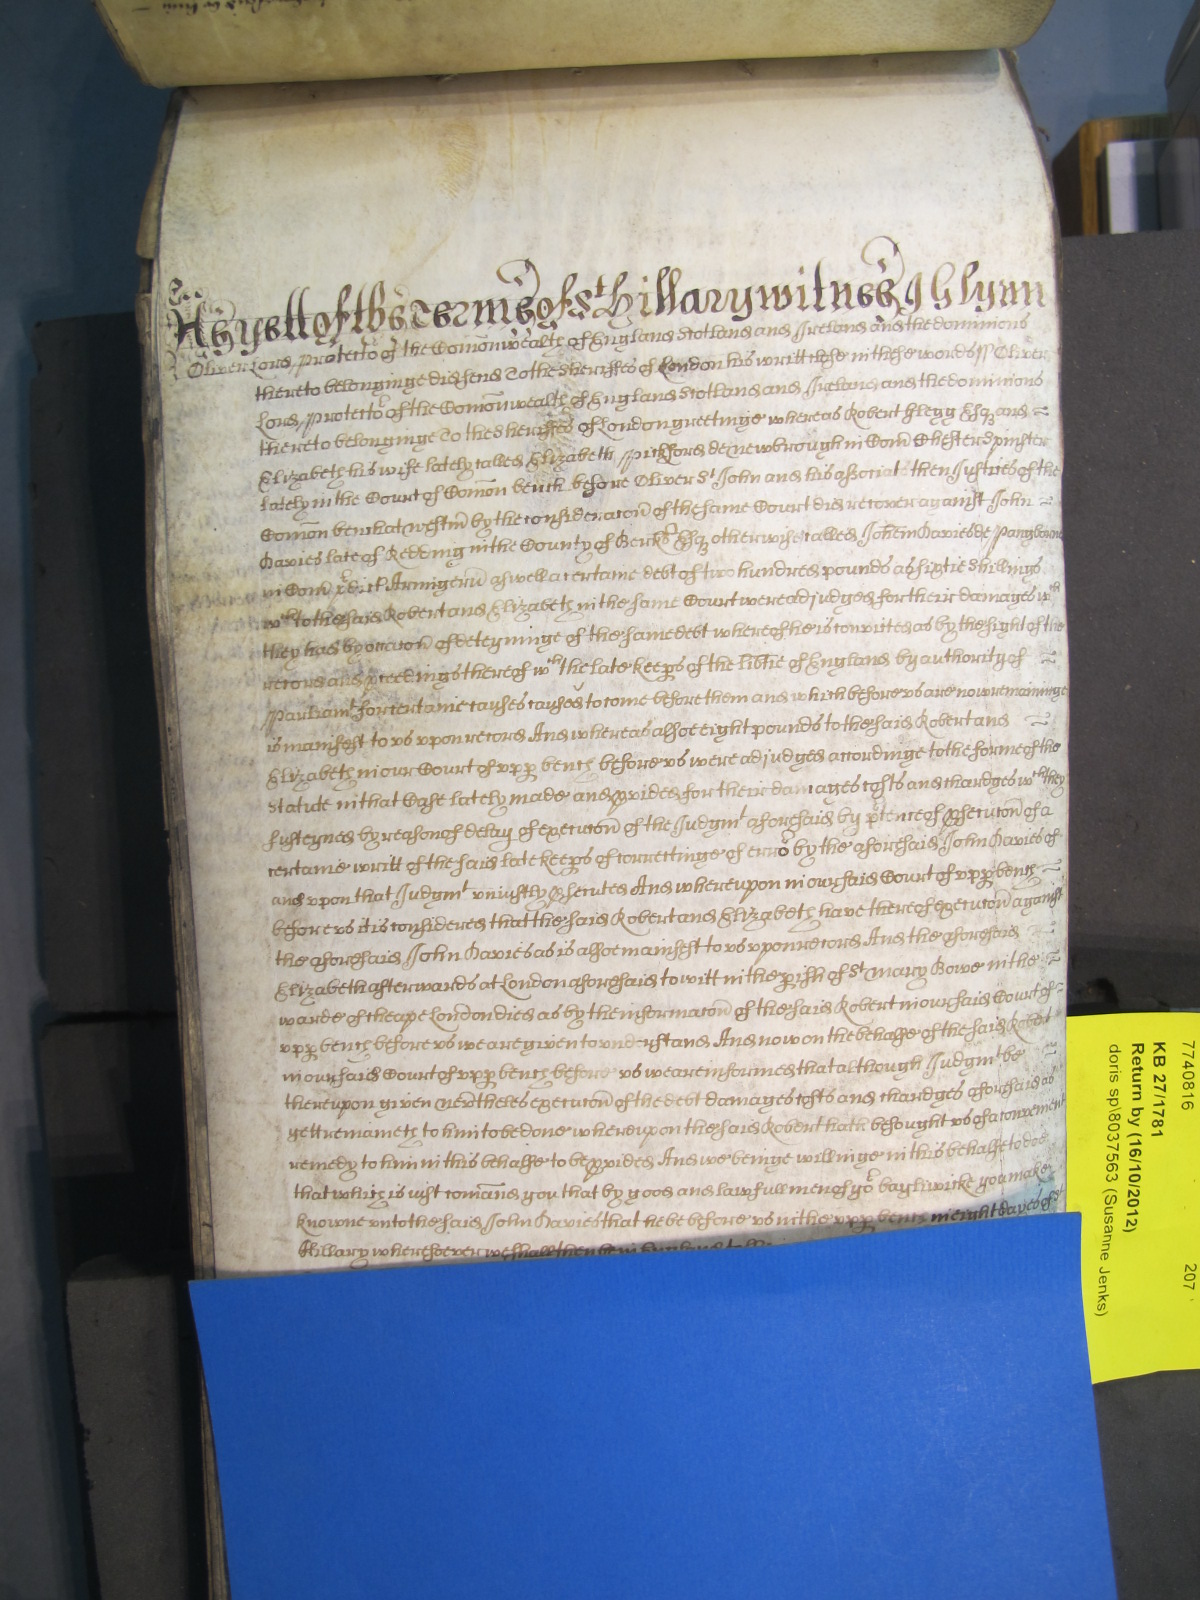 As yett of the Terme of St Hillary witnes J Glynn
Oliver Lord protector of the Comonwealth of England Scotland and Ireland and the dominions
thereto belonginge did send to the sheriffes of London his writt close in these words ss Oliver
Lord protector of the Comonwealth of England Scotland and Ireland and the dominions
thereto belonginge To the sheriffes of London greetinge whereas Robert Flegg Esqr and
Elizabeth his wife lately called Elizabeth Pickford de Newbrough in Com Chester Spinster
lately in the Court of Comon bench before Oliver St John and his associat then Justices of the
Comon bench at westm by the consideracon of the same Court did recover against John
Davies late of Redding in the County of Berks Esqr otherwise called Johem Davies de Pangborne
in Com predict Armigerum aswell a certaine debt of two hundred pounds as sixtie shillings
wch to the said Robert and Elizabeth in the same Court were adjudged for their damages wch
they had by occacon of deteyninge of the same debt whereof he is convicted as by the sight of the
record and proceedings thereof wch the late keeps of the libtie of England by authority of
Parliamt for certaine causes caused to come before them and which before us are now remaininge
is manifest to us upon record And whereas alsoe eight pounds to the said Robert and
Elizabeth in our Court of upp bench before us were adjudged accordinge to the forme of the
statute in that Case lately made and pvided for their damages costs and chardges wch they
susteyned by reason of delay of execucon of the Judgmt aforesaid by ptence of psecucon of a
certaine writt of the said late keeps of correctinge of error by the aforesaid John Davies of
and upon that Judgmt unjustly psecuted And whereupon in our said Court of upp bench
before us it is considered that the said Robert and Elizabeth have thereof execucon against
the aforesaid John Davies as is alsoe manifest to us upon record And the aforesaid
Elizabeth afterwards at London aforesaid to witt in the pish of St Mary Bowe in the
warde of Cheape London died as by the informacon of the said Robert in our said Court of
upp bench before us we are given to understand And now on the behalfe of the said Robert
in our said Court of upp bench before us we are informed that although Judgmt be
thereupon given nevtheles execucon of the debt damages costs and chardges aforesaid as
yett remaineth to him to be done whereupon the said Robert hath besought us of a convenient
remedy to him in this behalfe to be pvided And we beinge willinge in this behalfe to doe
that which is iust comand you that by good and lawfull men of yor bayliwicke you make
knowne unto the said John Davies that he be before us in the upp bench in eight dayes of St
Hillary wheresoever we shall then be in England
7740816 207
KB 27/1781
Return by (16/10/2012)
doris sp\8037563 (Susanne Jenks)